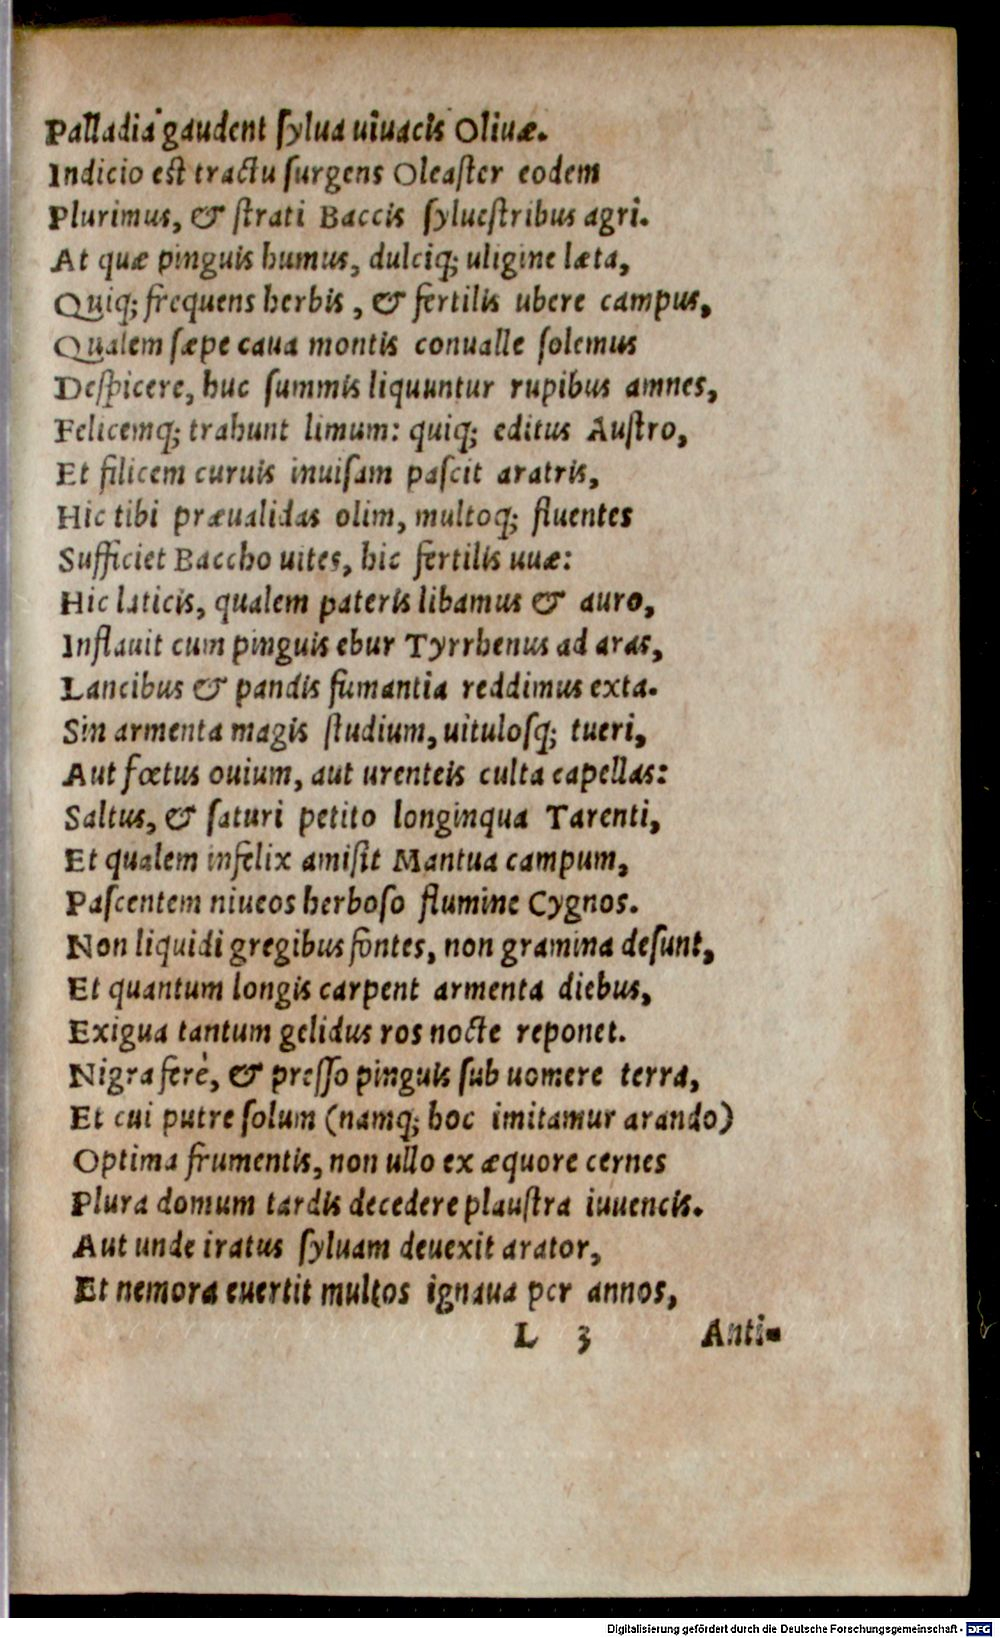 Palladia gaudent ſylua uiuacis Oliuæ.
Indicio est tractu ſurgens Oleaſter eodem
Plurimus, & ſtrati Baccis ſylueſtribus agri.
At quæ pinguis humus, dulciq; uligine læta,
Quiq; frequens herbis, & fertilis ubere campus,
Qualem ſæpe caua montis conualle ſolemus
Deſpicere, huc ſummis liquuntur rupibus amnes,
Felicemq; trahunt limum: quiq; editus Auſtro,
Et filicem curuis inuiſam paſcit aratris,
Hic tibi præualidas olim, multoq; fluentes
Sufficiet Baccho uites, hic fertilis uuæ:
Hic laticis, qualem pateris libamus & auro,
Inflauit cum pinguis ebur Tyrrhenus ad aras,
Lancibus & pandis fumantia reddimus exta.
Sin armenta magis ſtudium, uituloſq; tueri,
Aut fœtus ouium, aut urenteis culta capellas:
Saltus, & ſaturi petito longinqua Tarenti,
Et qualem infelix amiſit Mantua campum,
Paſcentem niueos herboſo flumine Cygnos.
Non liquidi gregibus fontes, non gramina deſunt,
Et quantum longis carpent armenta diebus,
Exigua tantum gelidus ros nocte reponet.
Nigra ferè, & preſſo pinguis ſub uomere terra,
Et cui putre ſolum (namq; hoc imitamur arando)
Optima frumentis, non ullo ex æquore cernes
Plura domum tardis decedere plauſtra iuuencis.
Aut unde iratus ſyluam deuexit arator,
Et nemora euertit multos ignaua per annos,
L 3 Anti-
Digitalisierung gefördert durch die Deutsche Forschungsgemeinschaft - DFG